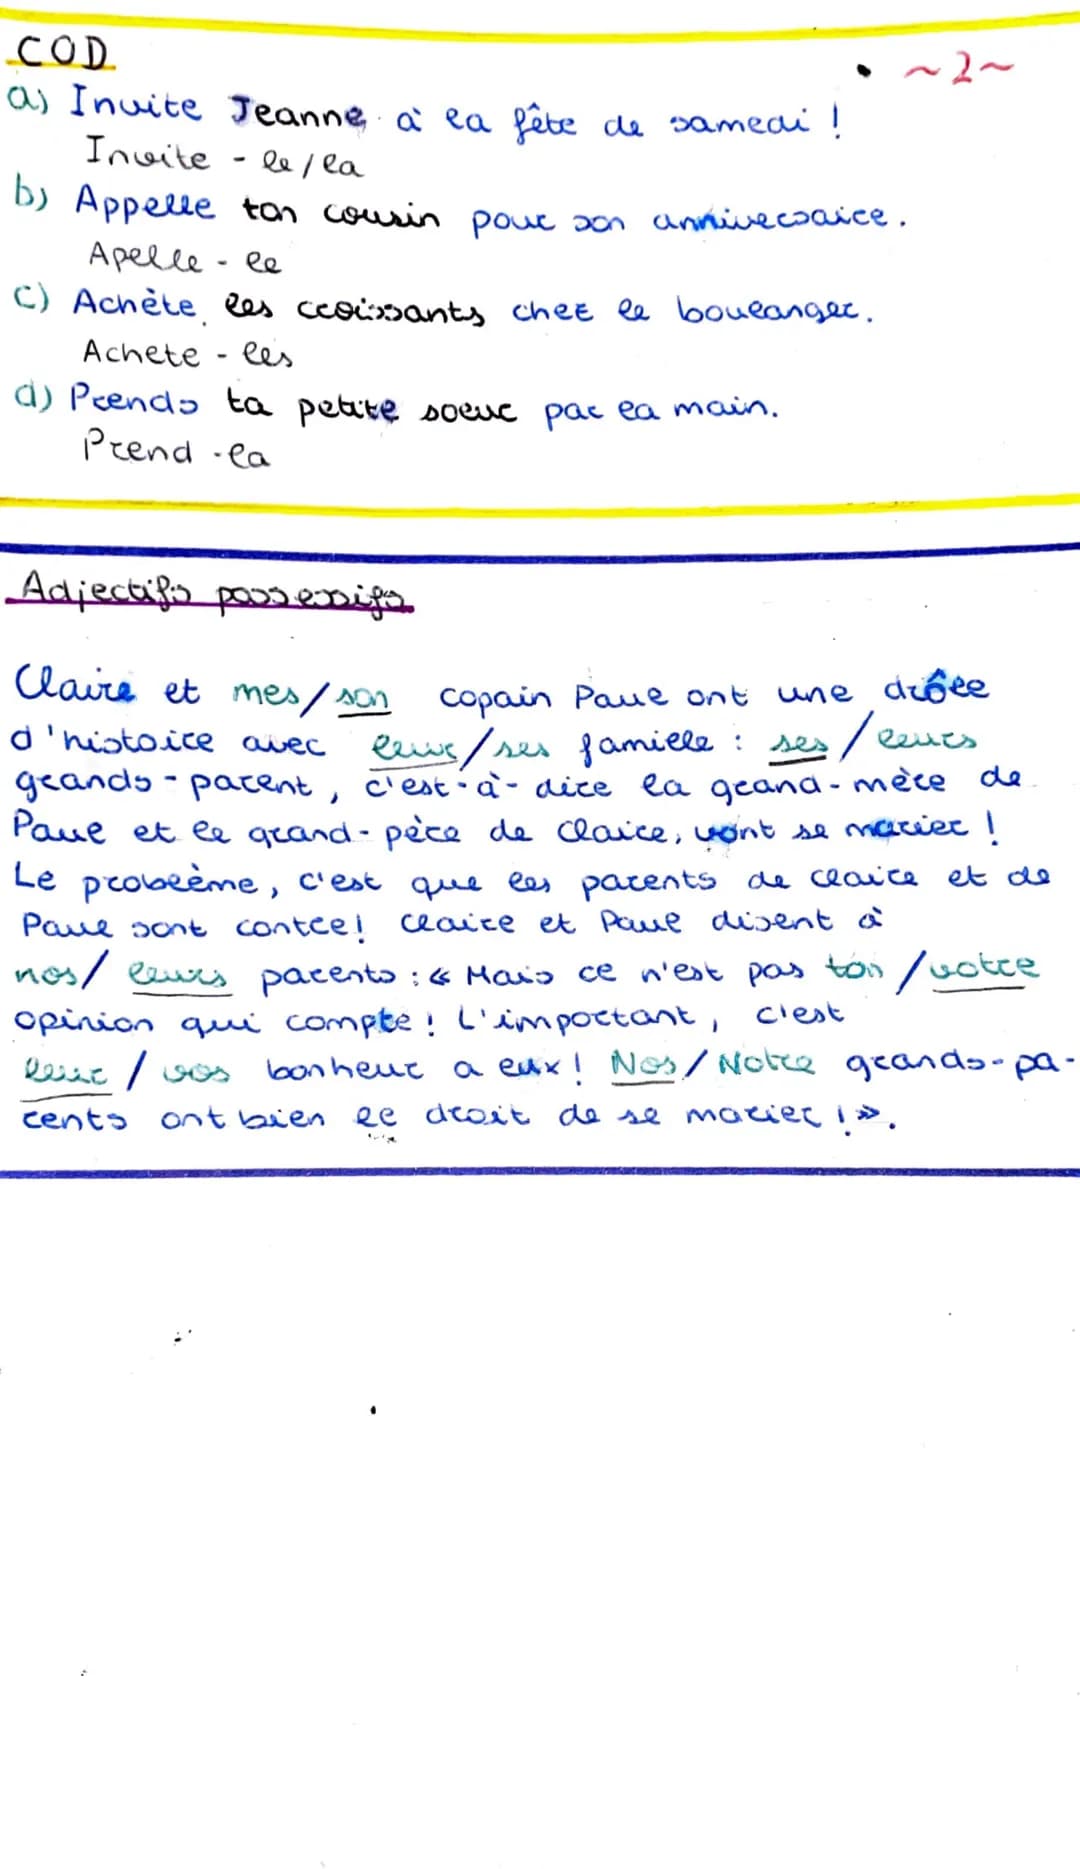 COD
• ~2~
a) Invite Jeanne à la fête de samedi !
Invite - le/la
b) Appelle ton cousin pour son anniversaire.
Apelle - le
c) Achète les croissants chez le boulanger.
Achete - les
d) Prends ta petite soeur par la main.
Prend - la
Adjectifs possessifs
Claire et mes/son copain Paul ont une drôle
d'histoire avec leur/ses famille : ses/leurs
grands-parent, c'est-à-dire la grand-mère de
Paul et le grand-père de Claire, vont se marier !
Le problème, c'est que les parents de Claire et de
Paul sont contre! Claire et Paul disent à
nos/ leurs parents : « Mais ce n'est pas ton /votre
opinion qui compte! L'important, c'est
leur / vos bonheur a eux! Nos/Notre grands-pa-
rents ont bien le droit de se marier !».